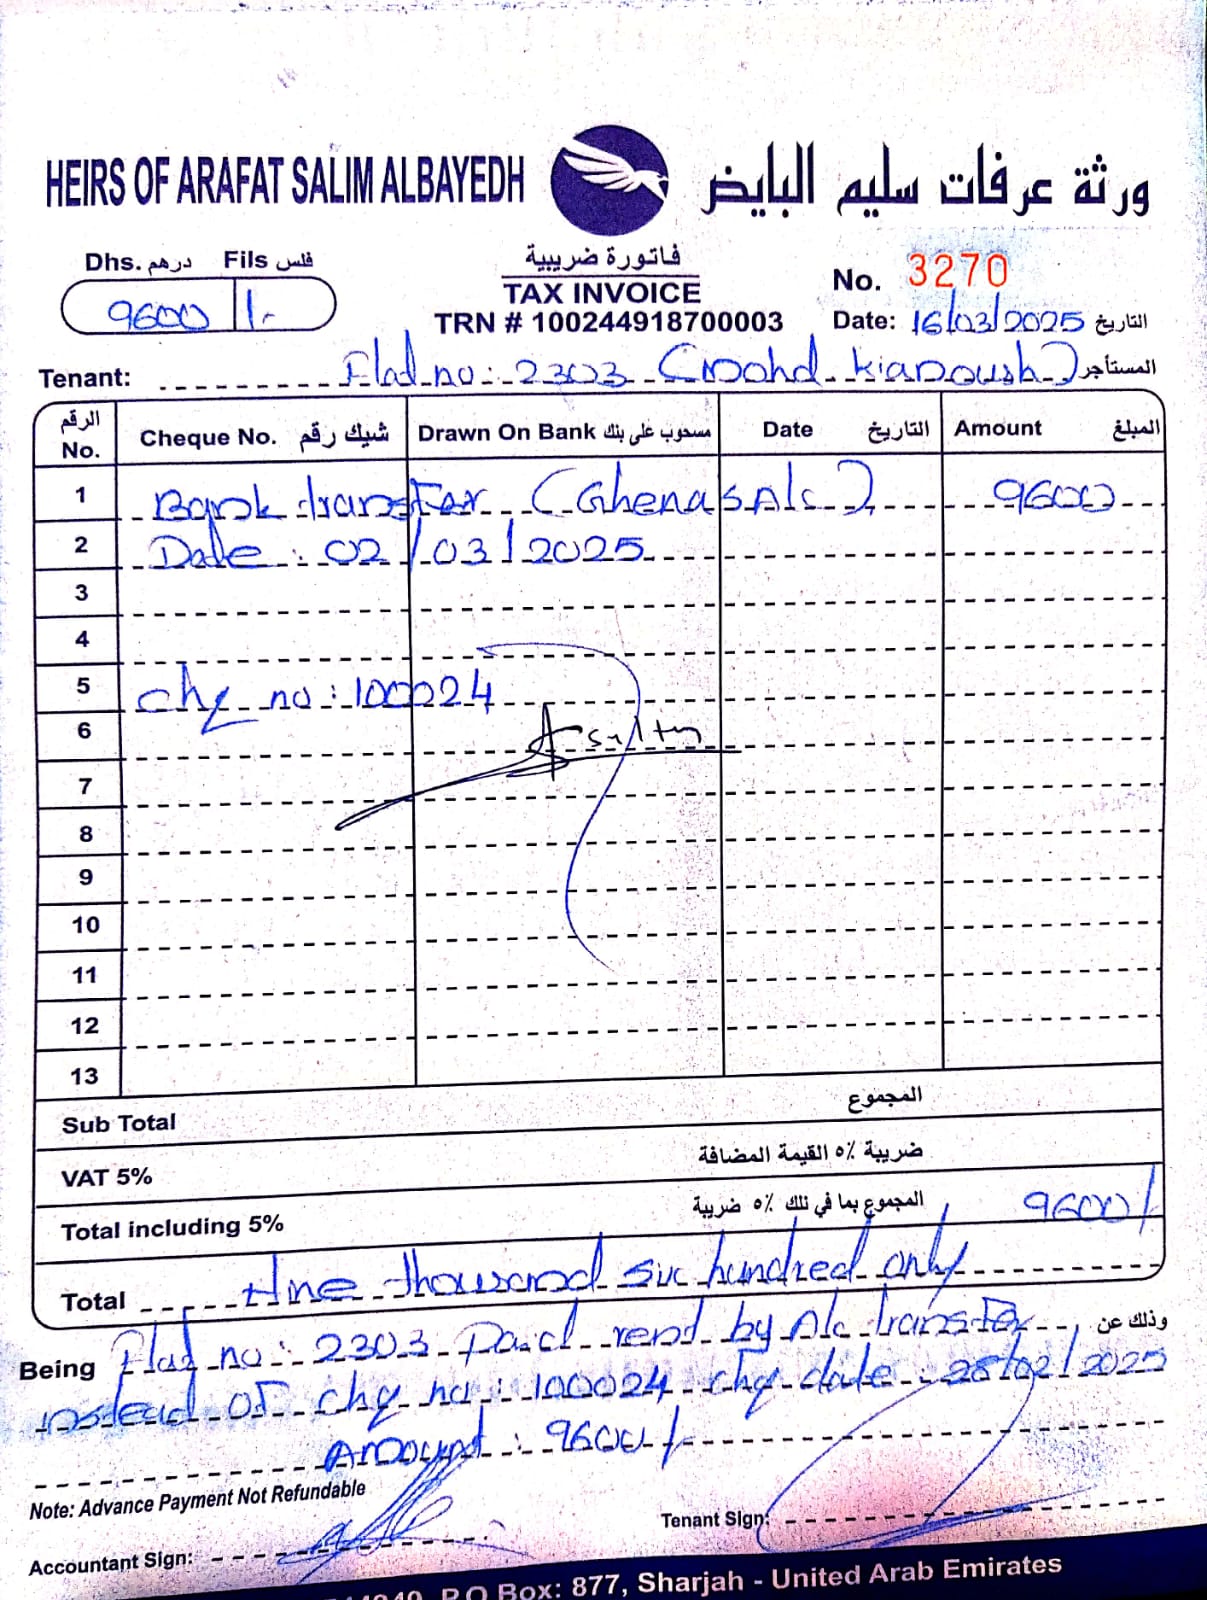 HEIRS OF ARAFAT SALIM ALBAYEDH ورثة عرفات سليم البايض
Dhs. درهم Fils فلس
9600 /-
فاتورة ضريبية
TAX INVOICE
TRN # 100244918700003
No. 3270
Date: 16/03/2025 التاريخ
Tenant: Flat no: 2303 (Mohd Kianoush) المستأجر
الرقم No. Cheque No. شيك رقم Drawn On Bank مسحوب على بنك Date التاريخ Amount المبلغ
1 Bank transfer (Ghena's A/c) 9600
2 Date: 02/03/2025
3
4
5 Chq no: 100024
6
7
8
9
10
11
12
13
Sub Total المجموع
VAT 5% ضريبة ٥% القيمة المضافة
Total including 5% المجموع بما في ذلك ٥% ضريبة 9600/
Total Nine thousand six hundred only
Being Flat no: 2303 Paid rent by A/c transfer وذلك عن
instead of chq no: 100024 chq date: 28/02/2025
Amount: 9600/-
Note: Advance Payment Not Refundable
Accountant Sign:
Tenant Sign:
P.O Box: 877, Sharjah - United Arab Emirates